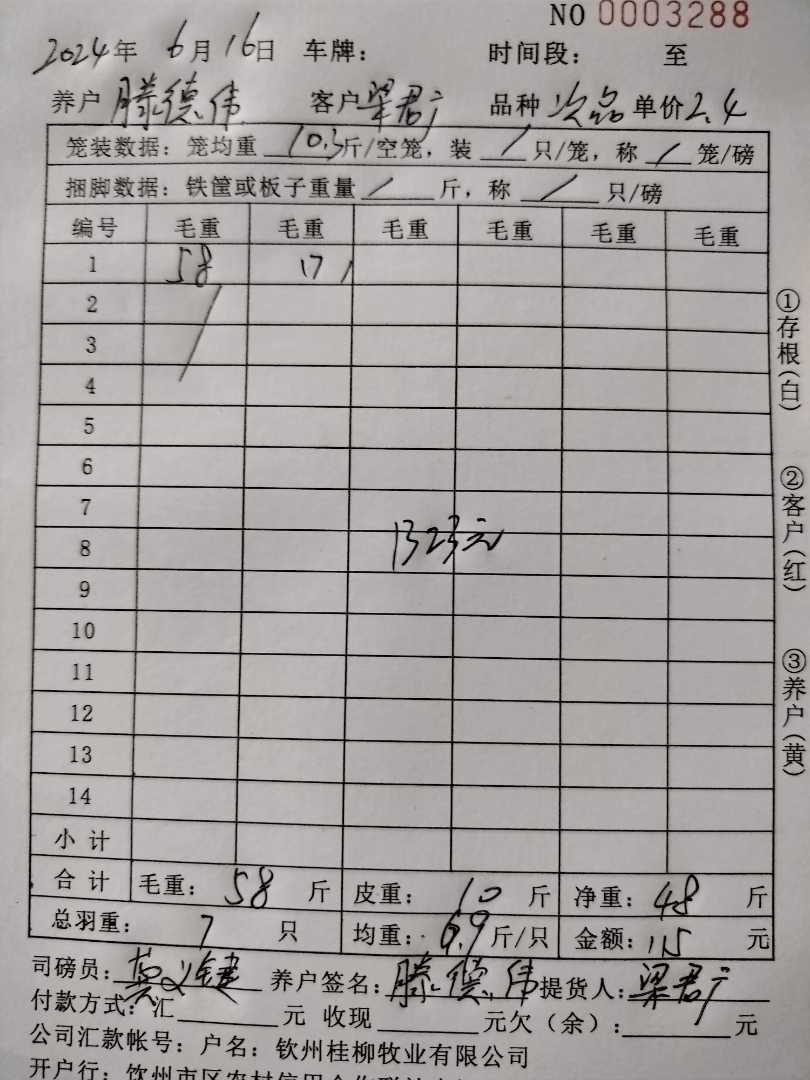 NO 0003288
2024年 6月16日 车牌： 时间段： 至
养户 滕德伟 客户 梁君广 品种 次品 单价 2.4
笼装数据：笼均重 10.3 斤/空笼，装 / 只/笼，称 / 笼/磅
捆脚数据：铁筐或板子重量 / 斤，称 / 只/磅
编号 毛重 毛重 毛重 毛重 毛重 毛重
1 58 17/
2
3
4
5
6
7
8 1323元
9
10
11
12
13
14
小计
合计 毛重：58 斤 皮重：10 斤 净重：48 斤
总羽重：7 只 均重：6.9 斤/只 金额：115 元
司磅员：莫义健 养户签名：滕德伟 提货人：梁君广
付款方式：汇 元 收现 元欠（余）： 元
公司汇款帐号：户名：钦州桂柳牧业有限公司
开户行：钦州市区农村信用合作联社
①存根（白）
②客户（红）
③养户（黄）